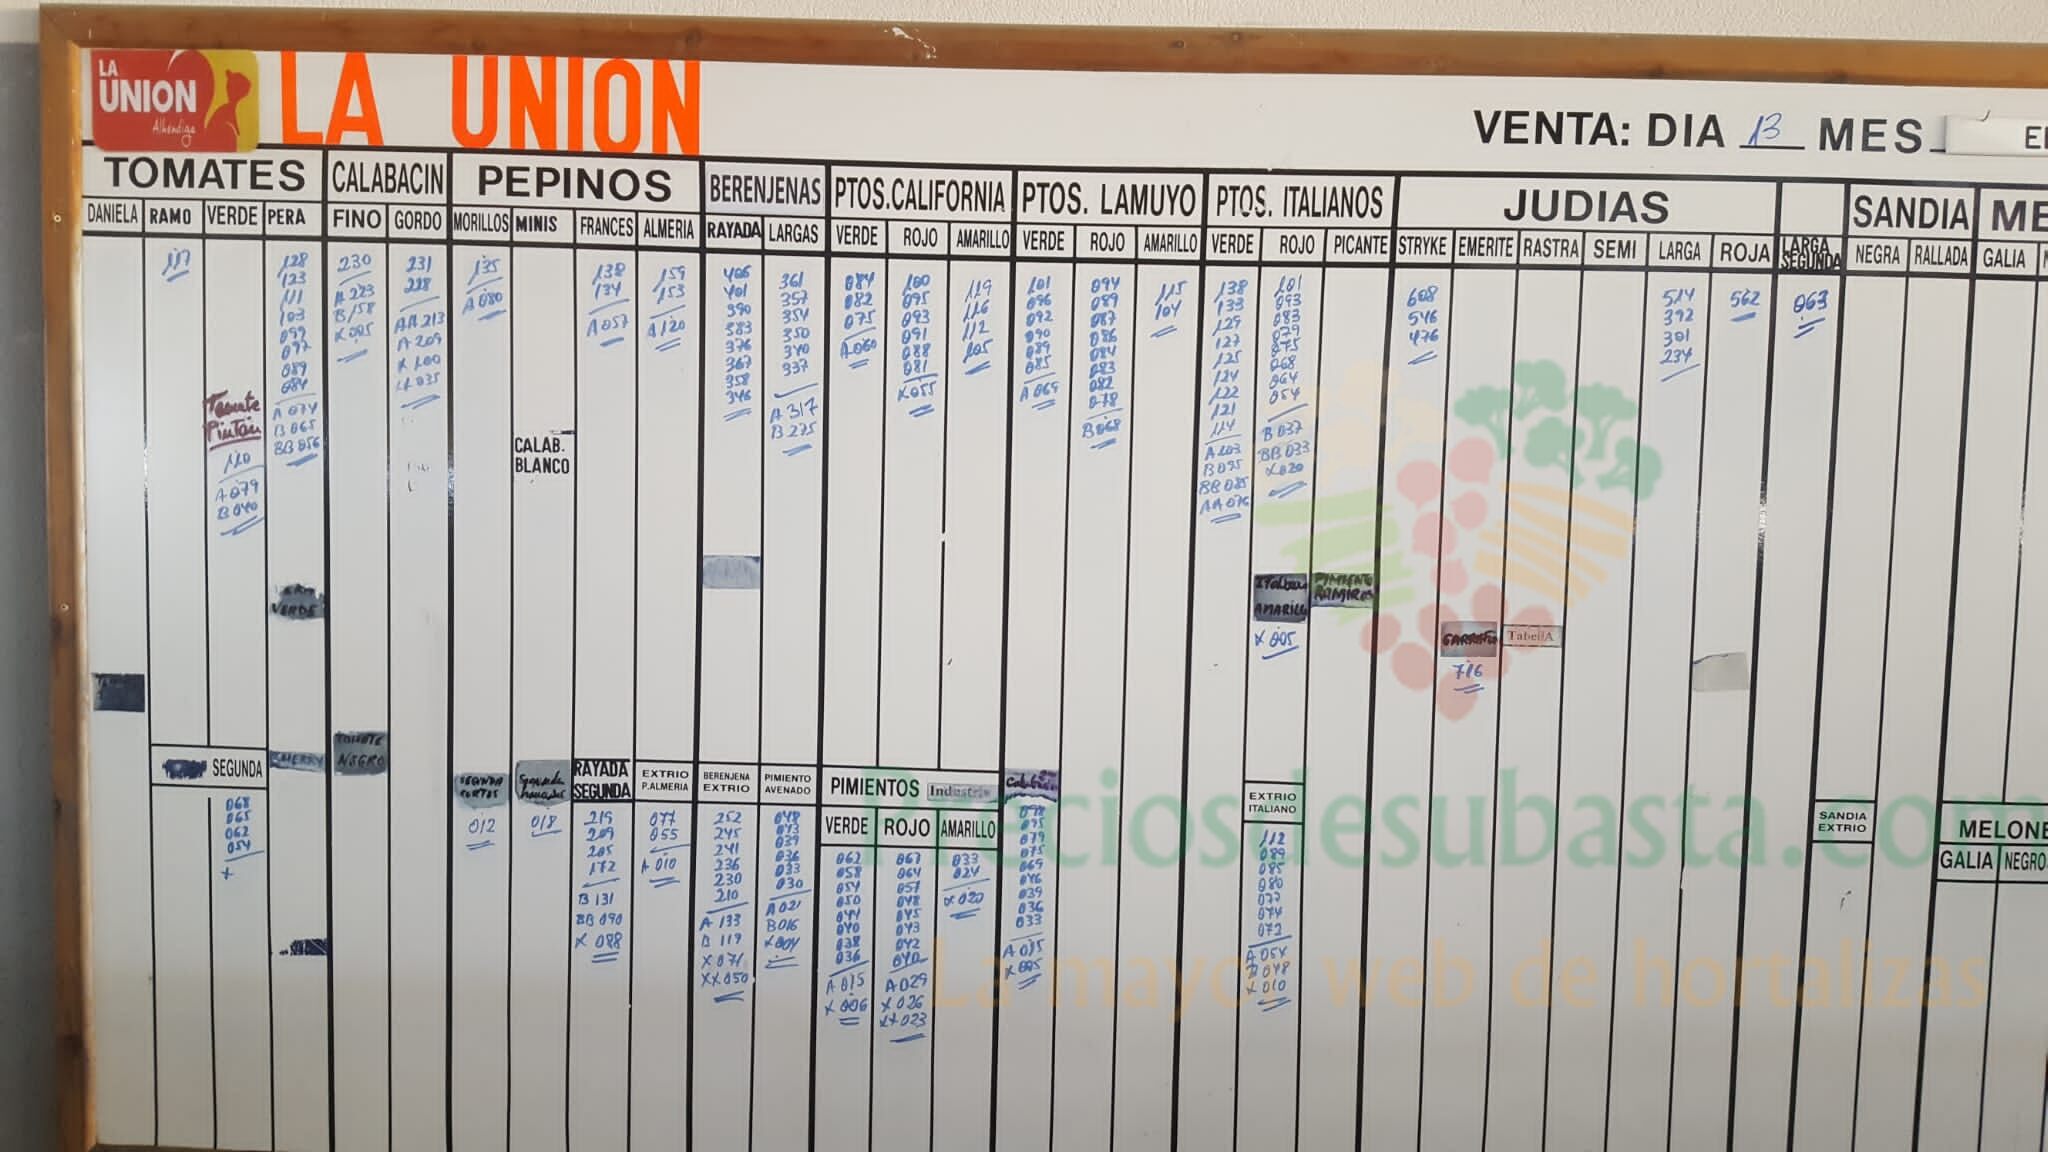 LA
UNION
Alhondiga
LA UNION
VENTA: DIA 13 MES
TOMATES
CALABACIN
PEPINOS
BERENJENAS
PTOS.CALIFORNIA
PTOS. LAMUYO
PTOS. ITALIANOS
JUDIAS
SANDIA
DANIELA RAMO VERDE PERA
FINO GORDO
MORILLOS MINIS FRANCES ALMERIA
RAYADA LARGAS
VERDE ROJO AMARILLO
VERDE ROJO AMARILLO
VERDE ROJO PICANTE
STRYKE EMERITE RASTRA SEMI LARGA ROJA
LARGA
SEGUNDA
NEGRA RALLADA
GALIA
117
Tomate
Pinton
110
A 079
B 040
128
123
111
103
099
097
089
084
A 074
B 065
BB 056
230
A 223
B 158
X 005
231
228
AA 213
A 209
X 100
XX 035
135
A 080
CALAB.
BLANCO
138
134
A 057
159
153
A 120
406
401
390
383
376
367
358
346
361
357
354
350
340
337
A 317
B 275
084
082
075
A 060
100
095
093
091
088
081
X 055
119
116
112
105
101
096
092
090
089
085
A 069
094
089
087
086
084
083
082
078
B 068
115
104
138
133
129
127
125
124
122
121
114
A 103
B 095
BB 085
AA 076
101
093
083
079
075
068
064
054
B 037
BB 033
X 020
AMARILLO
X 005
PIMIENTO
RAMIRO
608
546
476
716
TabellA
514
392
301
234
562
063
VERDE
TOMATE
NEGRO
SEGUNDA
068
065
062
054
X
SEGUNDA
CORTOS
012
Segunda
018
RAYADA
SEGUNDA
219
209
205
172
B 131
BB 090
X 088
EXTRIO
P.ALMERIA
077
055
A 010
BERENJENA
EXTRIO
252
245
241
236
230
210
A 133
B 119
X 071
XX 050
PIMIENTO
AVENADO
048
043
039
036
033
030
A 021
B 016
X 004
PIMIENTOS Industria
VERDE ROJO AMARILLO
062
058
054
050
044
040
038
036
A 015
X 006
067
064
057
048
045
043
042
040
A 029
X 026
XX 023
033
024
X 020
098
095
079
075
069
046
039
036
033
A 015
X 005
EXTRIO
ITALIANO
112
089
085
080
077
074
072
A 054
B 048
X 010
SANDIA
EXTRIO
MELONE
GALIA NEGRO
Preciosdesubasta.com
La mayor web de hortalizas